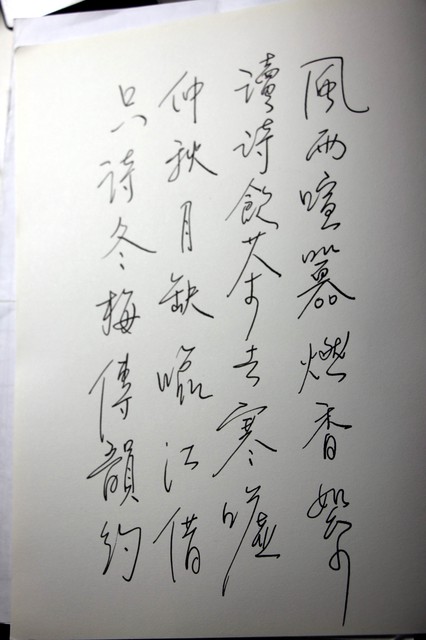 風雨喧囂燃香絮
讀詩飲茶去寒噓
仲秋月缺臨江借
只詩冬梅傳韻約